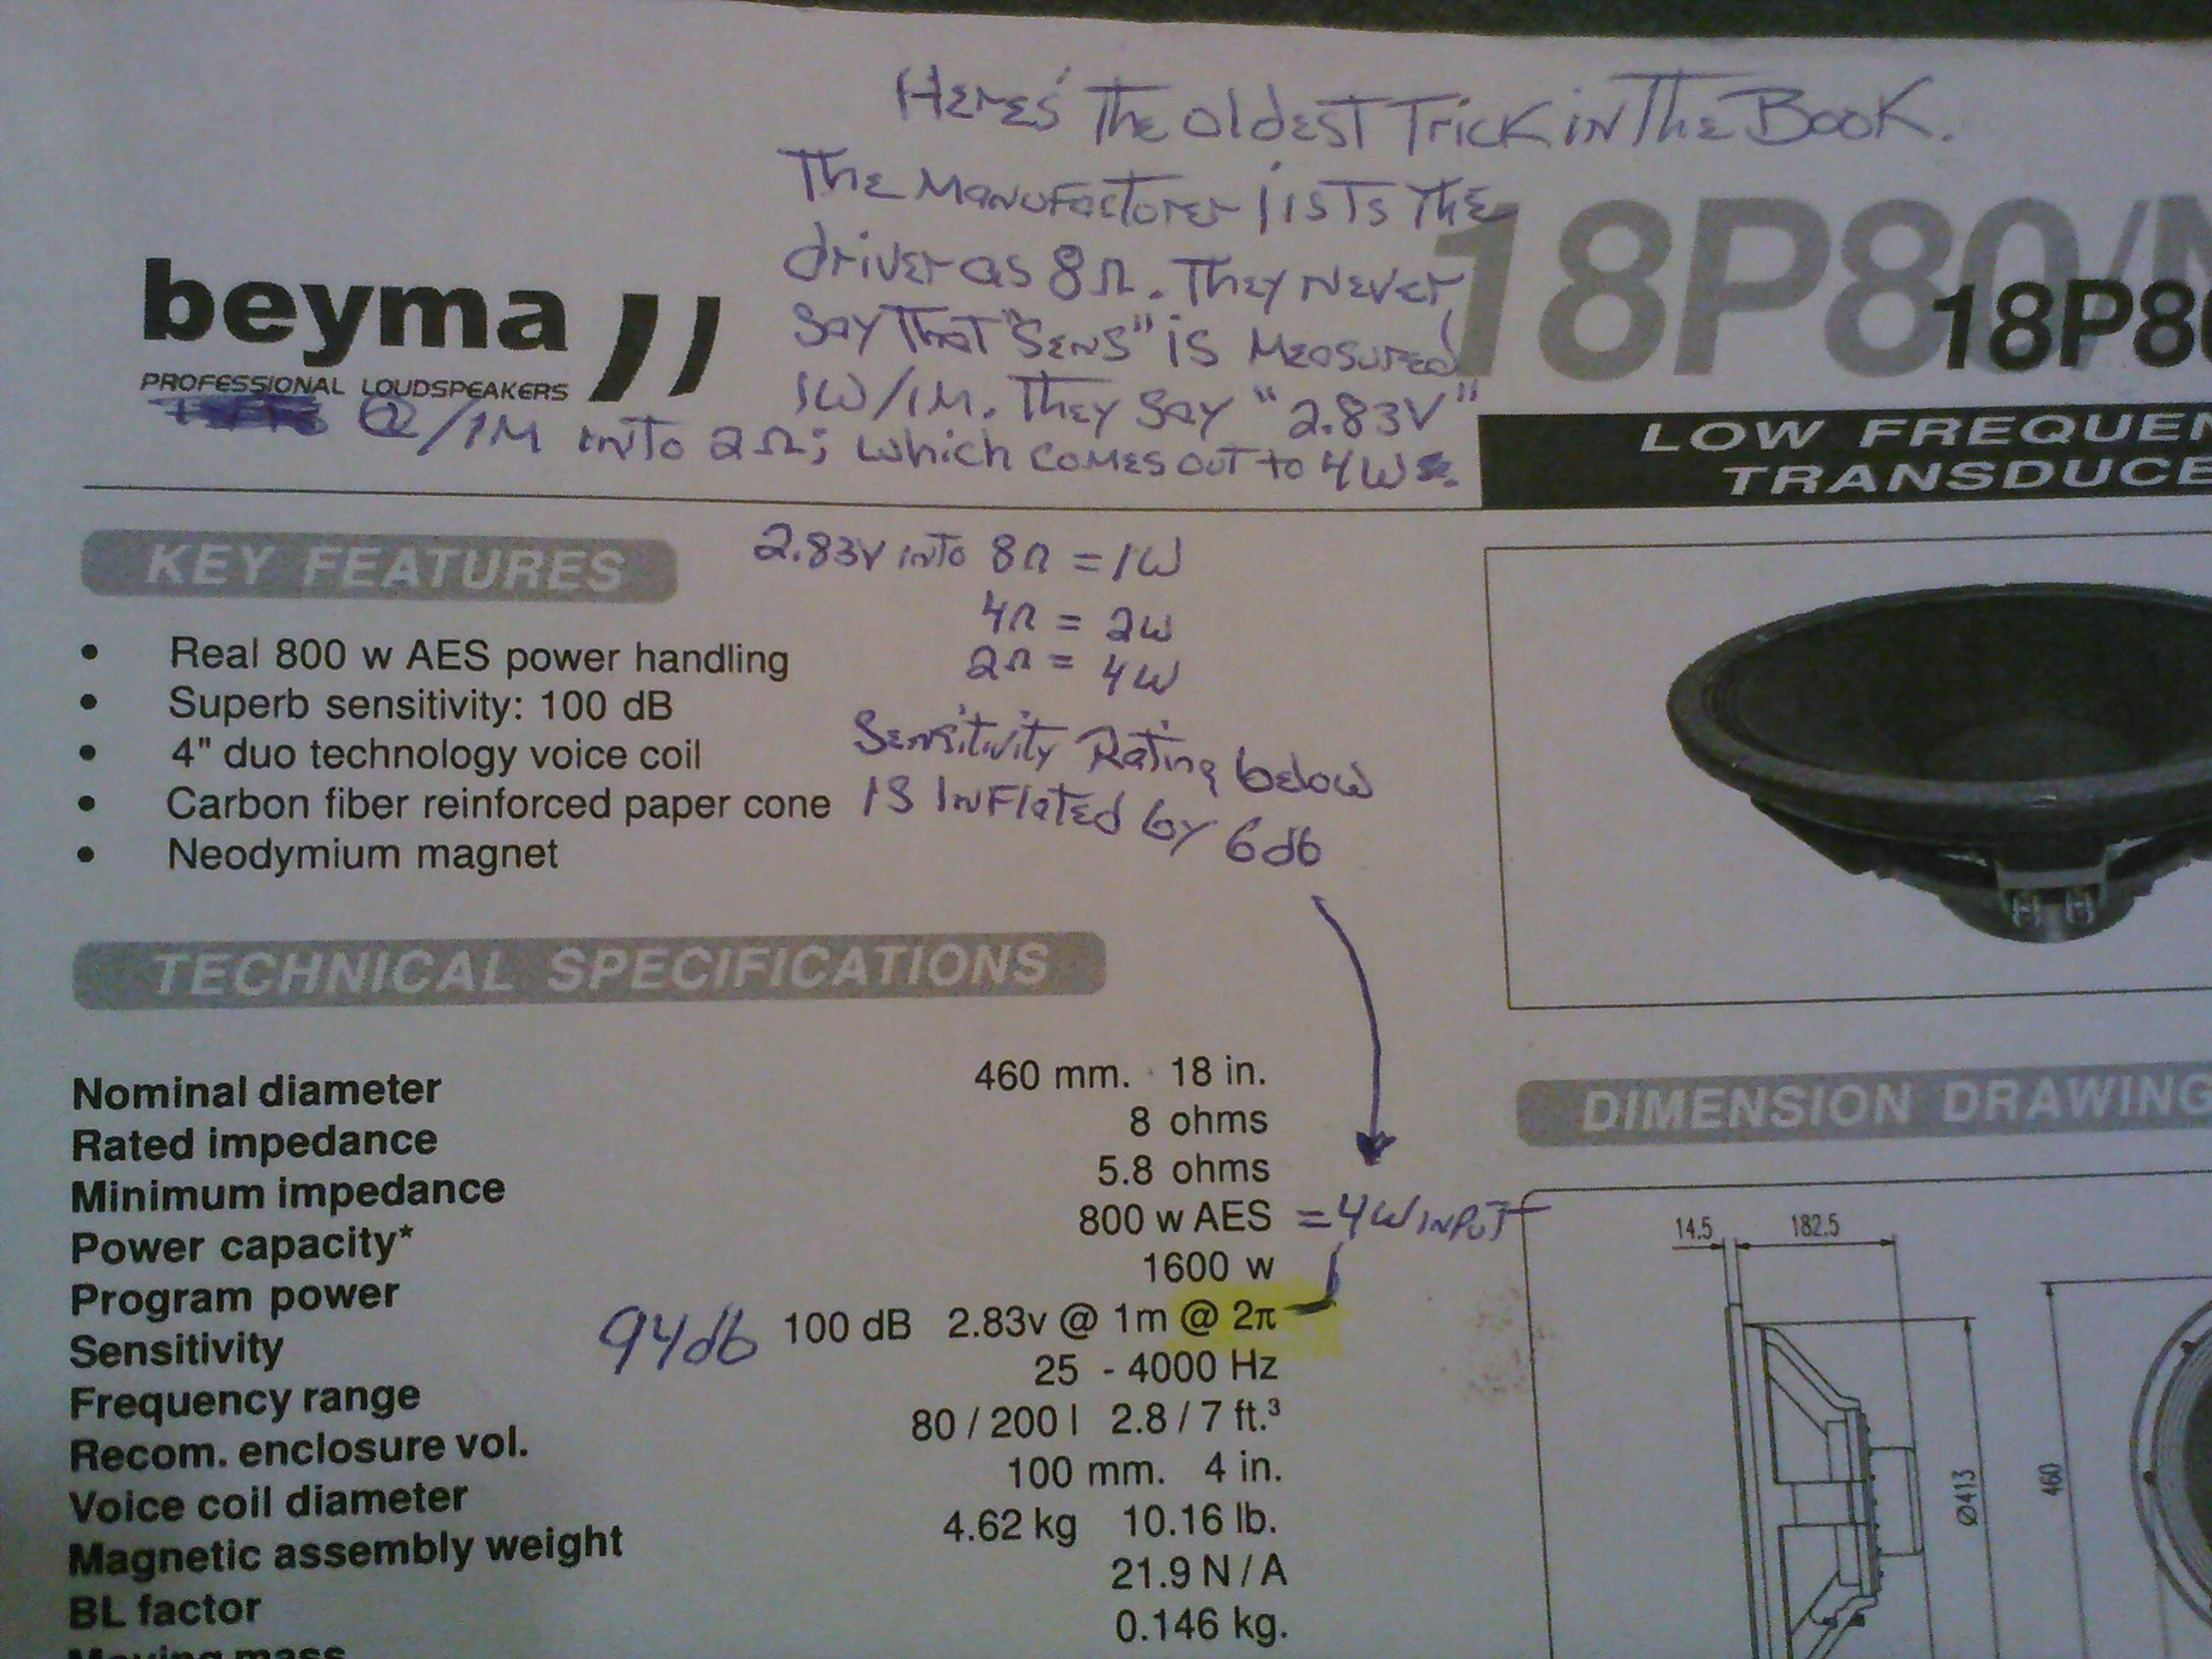 Here's The oldest Trick in The Book.
The Manufacturer lists The
driver as 8Ω. They Never
say That "Sens" is Measured
1W/1M. They say "2.83V"
@/1M into 2Ω; which comes out to 4W
18P80/N
18P80
beyma
PROFESSIONAL LOUDSPEAKERS
LOW FREQUEN
TRANSDUCE
KEY FEATURES
2.83V into 8Ω = 1W
4Ω = 2W
2Ω = 4W
• Real 800 w AES power handling
• Superb sensitivity: 100 dB
• 4" duo technology voice coil
• Carbon fiber reinforced paper cone
• Neodymium magnet
Sensitivity Rating below
is Inflated by 6db
TECHNICAL SPECIFICATIONS
Nominal diameter 460 mm. 18 in.
Rated impedance 8 ohms
Minimum impedance 5.8 ohms
Power capacity* 800 w AES = 4W input
Program power 1600 w
Sensitivity 94db 100 dB 2.83v @ 1m @ 2π
Frequency range 25 - 4000 Hz
Recom. enclosure vol. 80 / 200 l 2.8 / 7 ft.³
Voice coil diameter 100 mm. 4 in.
Magnetic assembly weight 4.62 kg 10.16 lb.
BL factor 21.9 N / A
Moving mass 0.146 kg.
DIMENSION DRAWING
14.5
182.5
Ø413
460